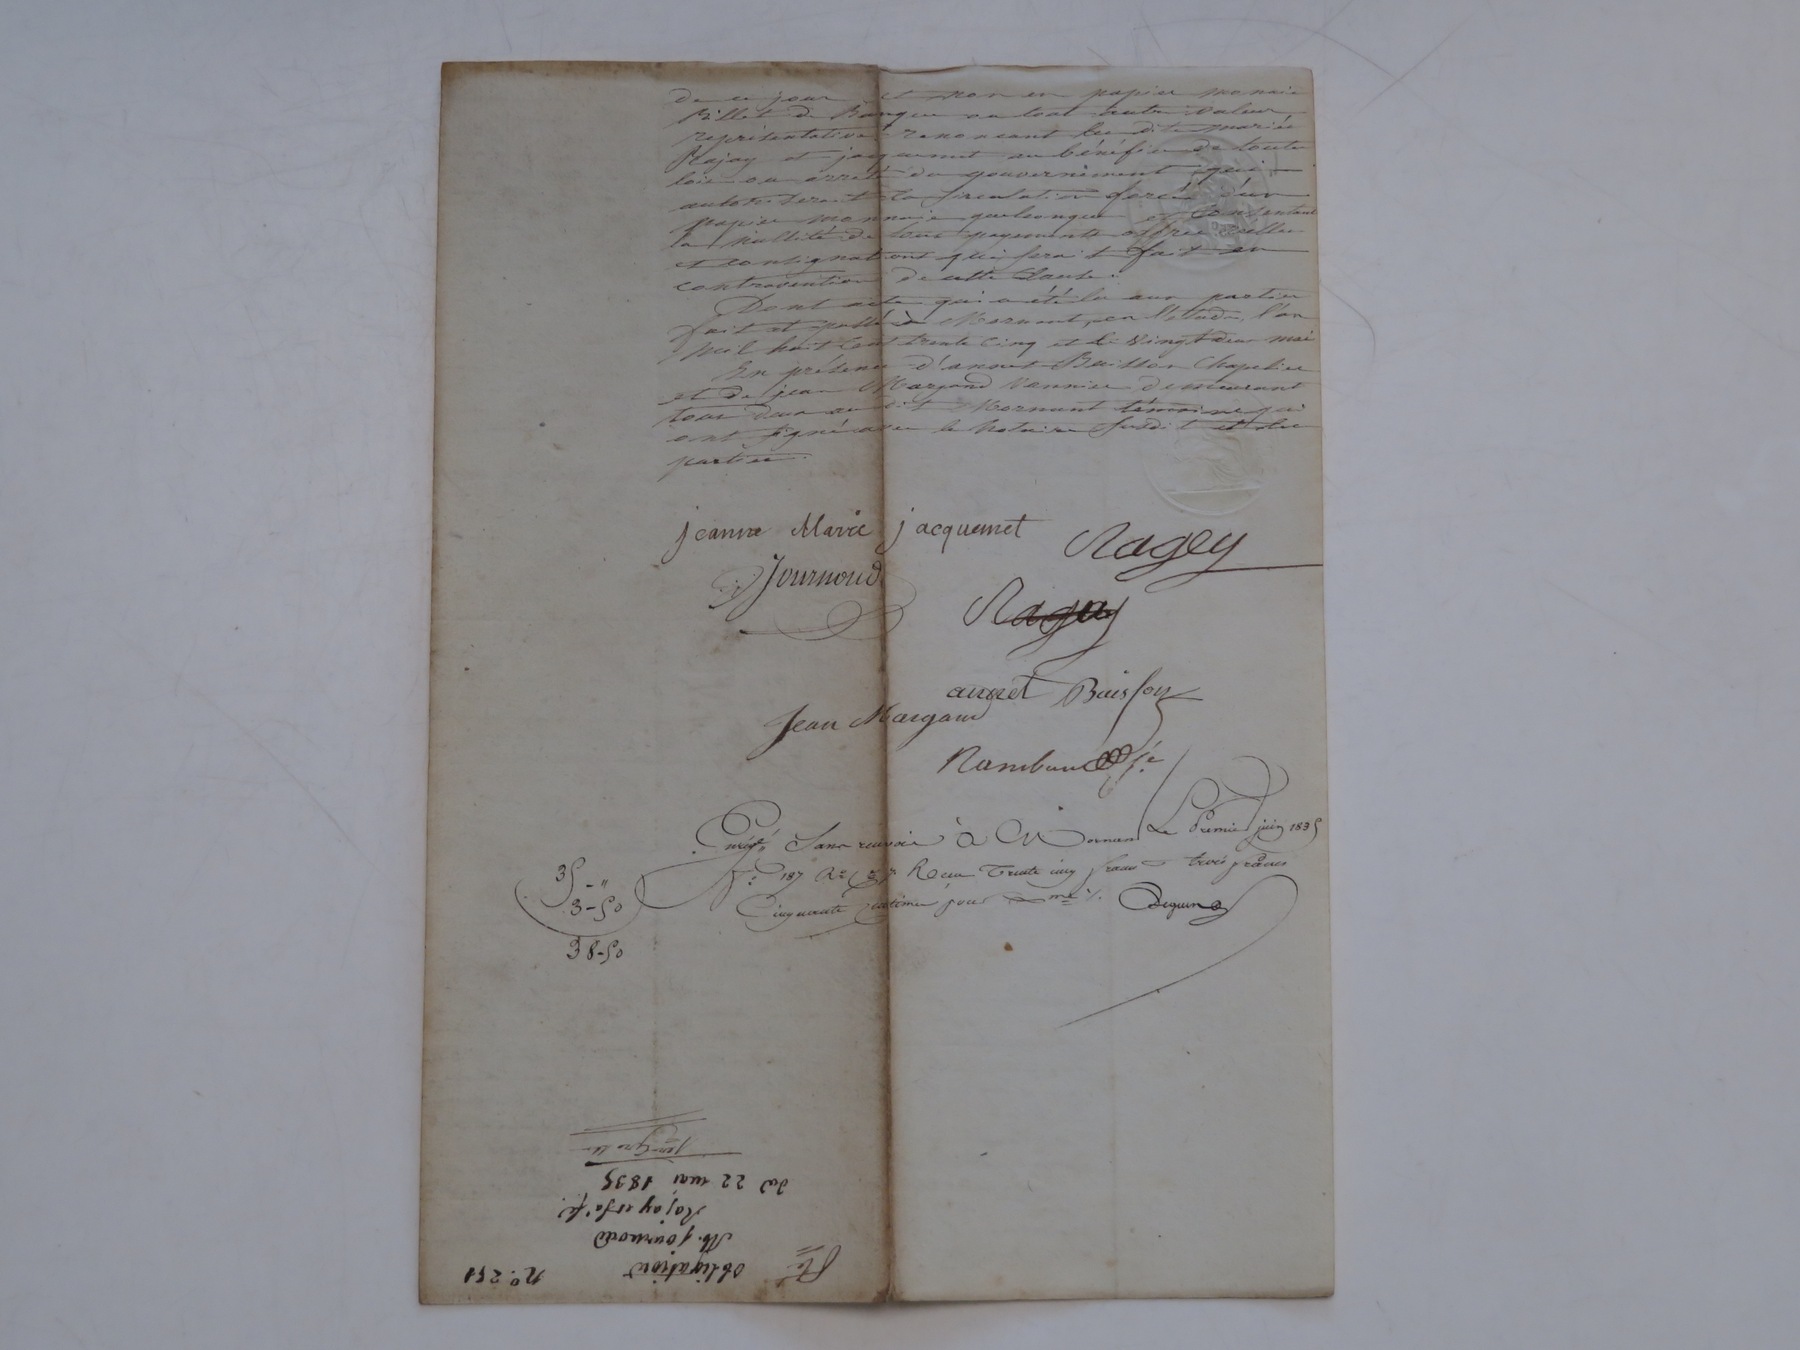 de ce jour et non en papier monaie
Billet de Banque ou tout autre valeur
représentative renoncant les dits mariés
Rajay et jacquemet au bénéfice de toute
loix ou arreté du gouvernement qui
autoriserait la circulation forcée d'un
papier monnaie quelconque et consentent
la nullité de tous payements offres réelles
et consignations qui serait fait en
contravention de cette Clause.
Dont acte qui a été lu aux parties
fait et passé à Mornant, en l'étude, l'an
mil huit Cent trente Cinq et le vingt deux mai
En présence d'annet Buisson Chapelier
et de jean Margand vannier demeurant
tous deux au dit Mornant témoins qui
ont signé avec le Notaire susdit et les
parties.
jeanne Marie jacquemet
Ragey
Journoud
annet Buisson
Jean Margand
Enregé Sans renvoi à Mornant Le Premier juin 1835
No 187 Recu Trente cinq francs trois francs
Cinquante centimes pour
35 - "
3 - 50
38-50
No. 251
obligation
M. Journoud
Rajay et sa f.
du 22 mai 1835